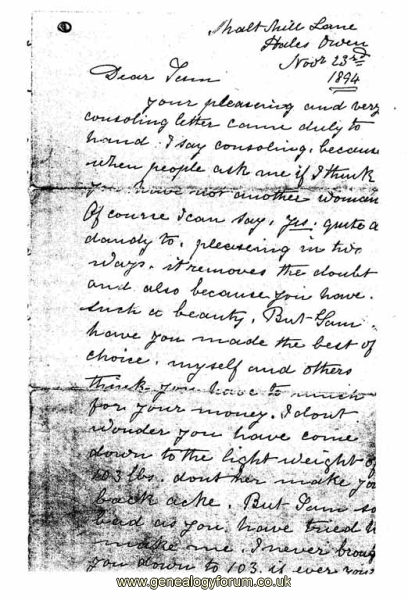 Malt Mill Lane
Hales Owen
Novr 23rd
1894
Dear Sam
your pleasering and very
consoling letter came duly to
hand. I say consoling, because
when people ask me if I think
you have not another woman
Of course I can say, yes. quite a
dandy to, pleasering in two
ways, it removes the doubt
and also because you have
such a beauty, But Sam
have you made the best of
choice, myself and others
think you have to much
for your money. I dont
wonder you have come
down to the light weight of
103 lbs. dont her make you
back ache. But Sam so
bad as you have tried
make me. I never
you down to 103. is ever
www.genealogyforum.co.uk